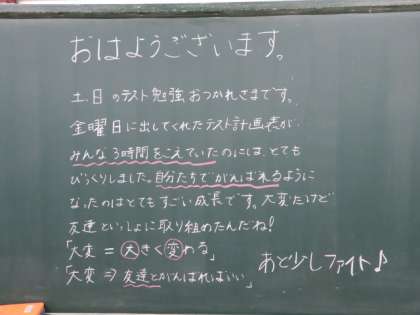 おはようございます。
土日のテスト勉強おつかれさまです。
金曜日に出してくれたテスト計画表が、
みんな3時間をこえていたのには、とても
びっくりしました。自分たちでがんばれるように
なったのはとてもすごい成長です。大変だけど
友達といっしょに取り組めたんだね!
「大変 = 大きく変わる」
「大変 ⇒ 友達とがんばればいい」
あと少しファイト♪